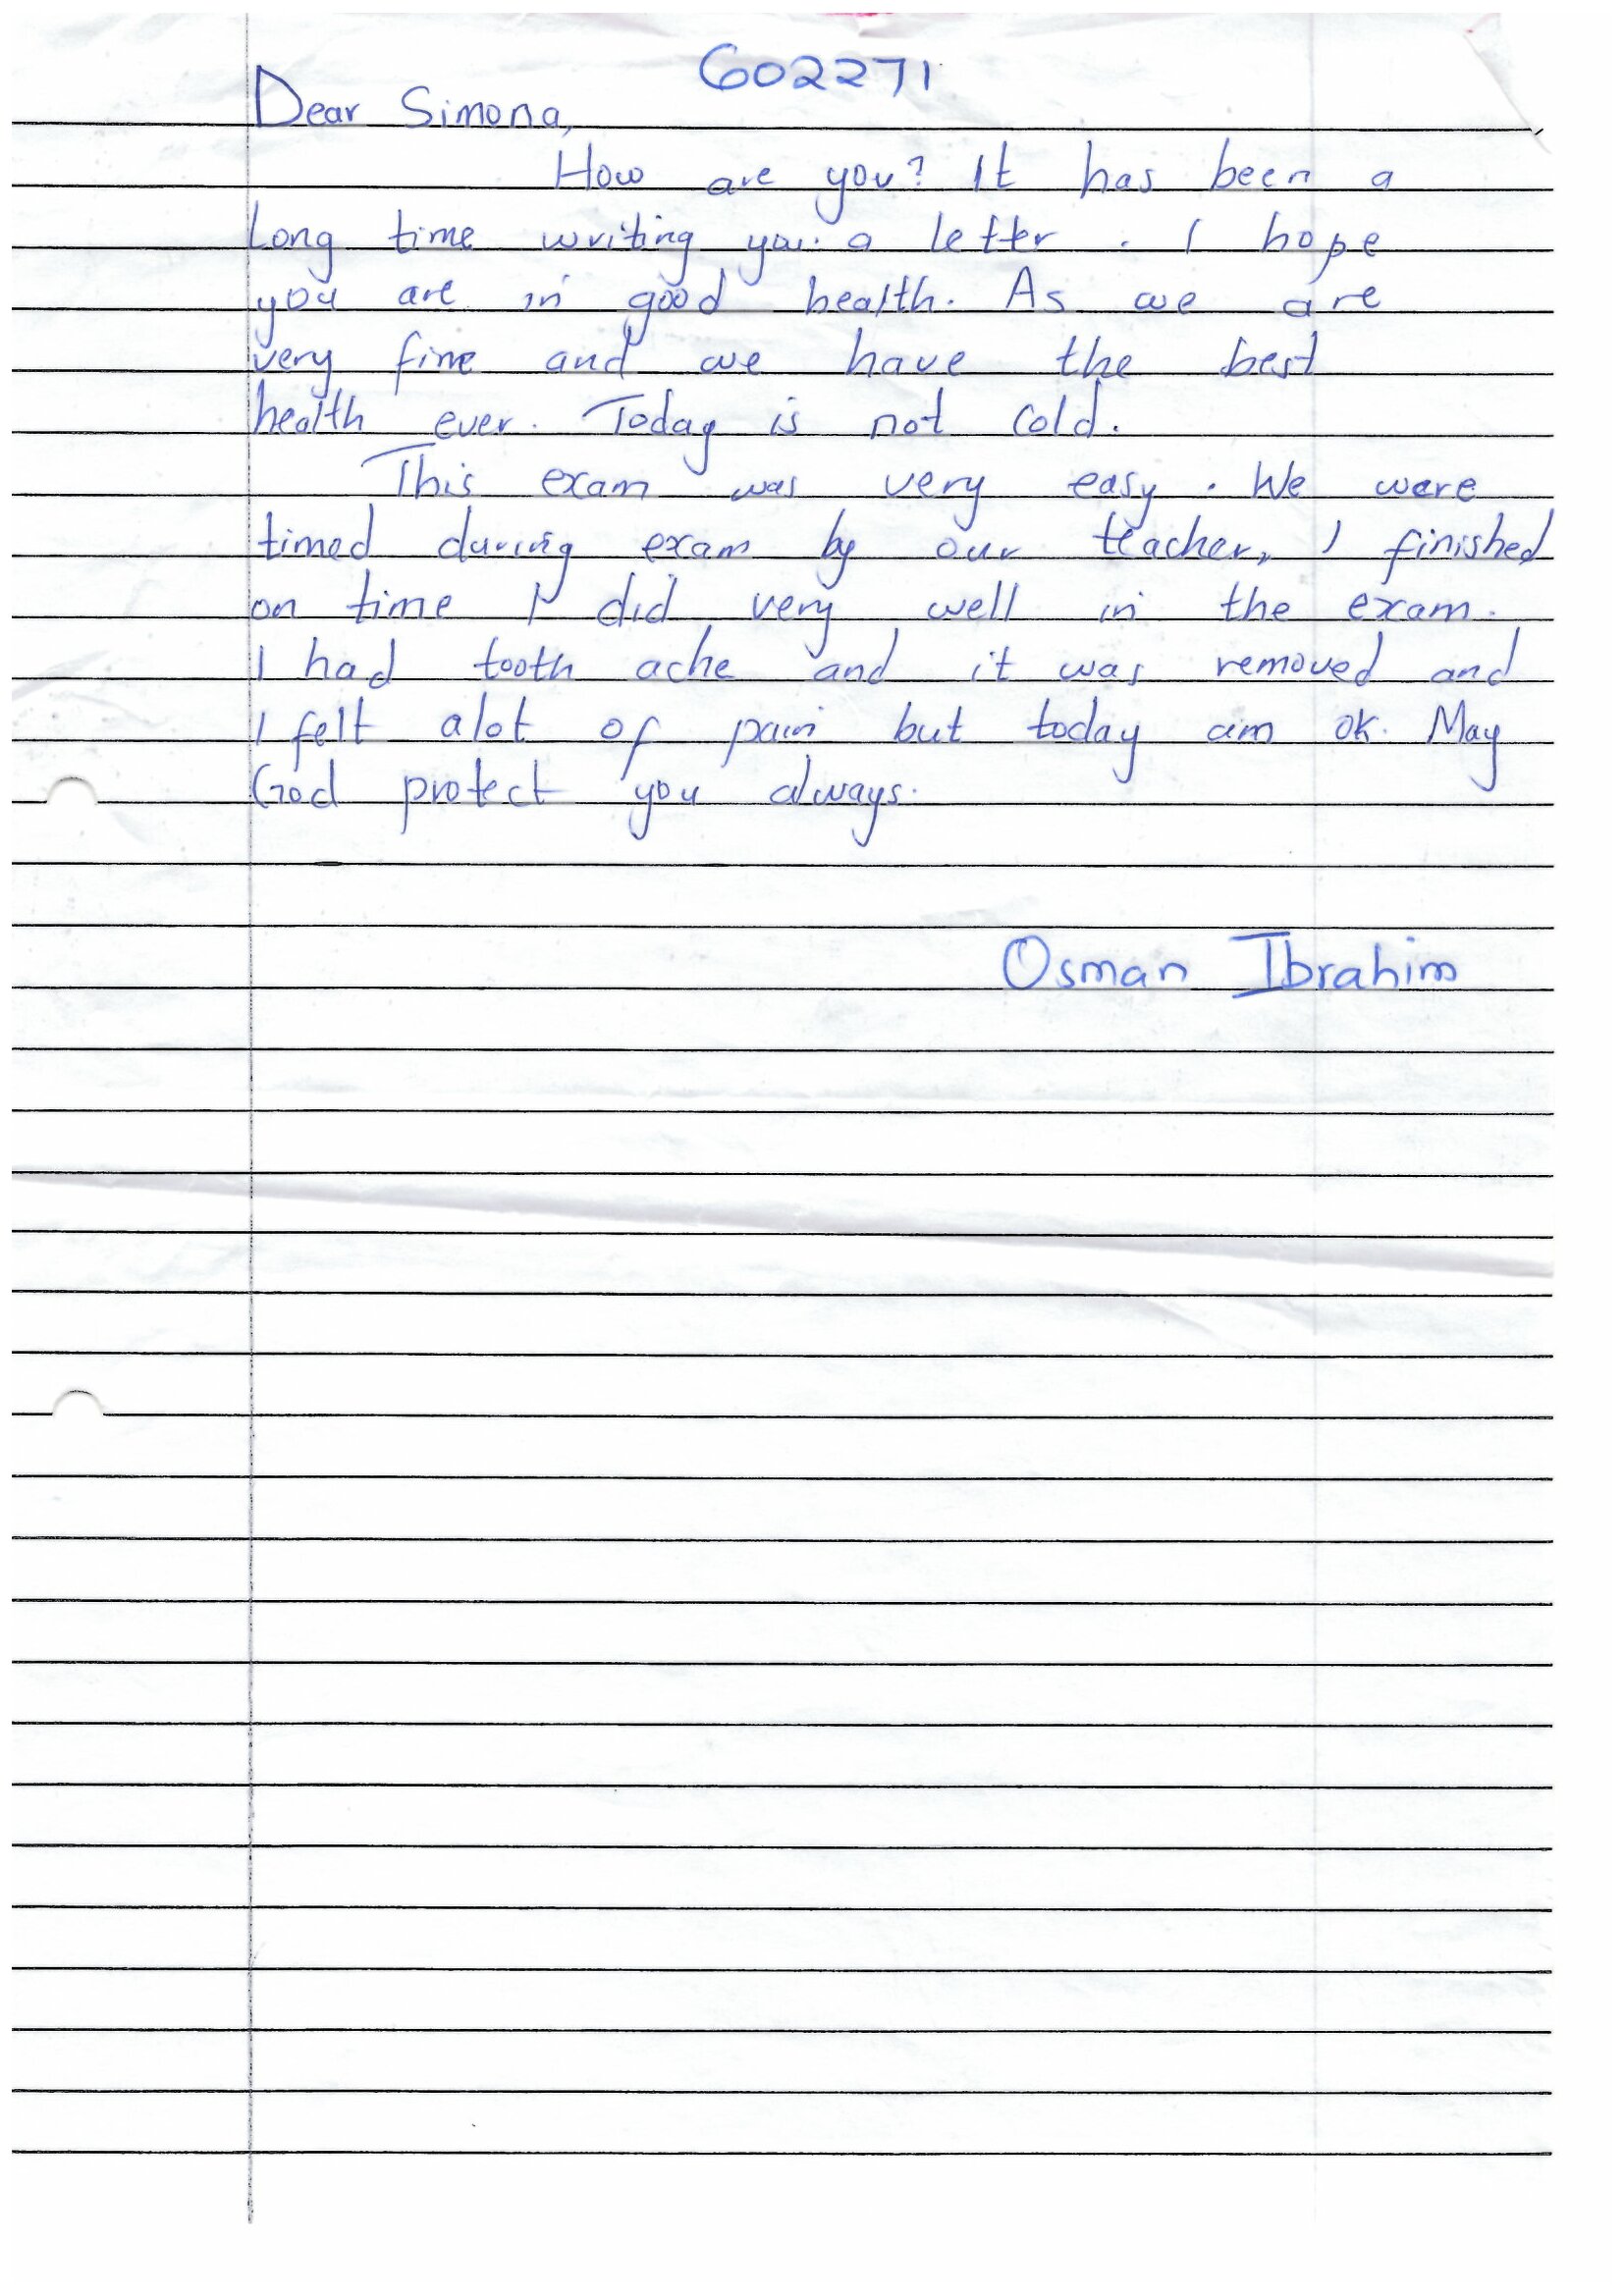 602271
Dear Simona,
How are you? It has been a
long time writing you a letter. I hope
you are in good health. As we are
very fine and we have the best
health ever. Today is not cold.
This exam was very easy. We were
timed during exam by our teacher, I finished
on time I did very well in the exam.
I had tooth ache and it was removed and
I felt alot of pain but today am ok. May
God protect you always.
Osman Ibrahim